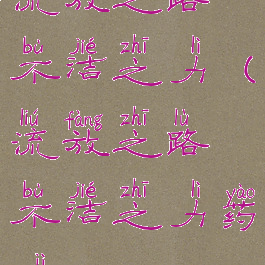 流放之路
bù jié zhī lì
不洁之力（
liú fàng zhī lù
流放之路
bù jié zhī lì yào
不洁之力药
jì